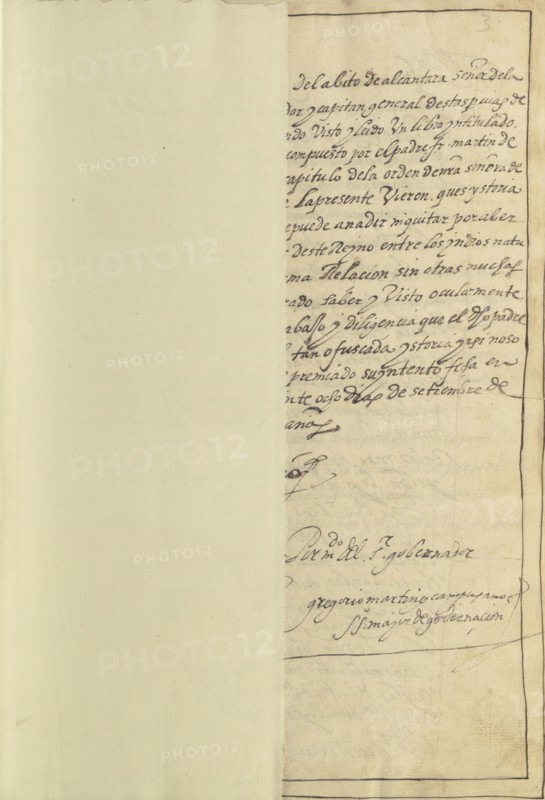 3
del abito de alcantara señor dela
dor y capitan general destas pʳuiaˢ de
ndo Visto y leido Vn libro yntitulado
compuesto por el padre fr. martin de
capitulo dela orden de nrā señora de
Lapresente Vieren. ques ystoria
epuede anadir ni quitar por aber
deste Reyno entre los yndios natu
ma Relacion sin otras muchas
rado saber y Visto ocularmente
abajo y diligencia que el dho padre
tan ofuscada ystoria y espinoso
premiado su yntento fecha en
nte ocho dias de setiembre de
años
Por mdo del sr gobernador
gregorio martinez campusano
ss. mayor de gobernacion
PHOTO12
PHOTO12
PHOTO12
PHOTO12
PHOTO12
PHOTO12
PHOTO12
PHOTO12